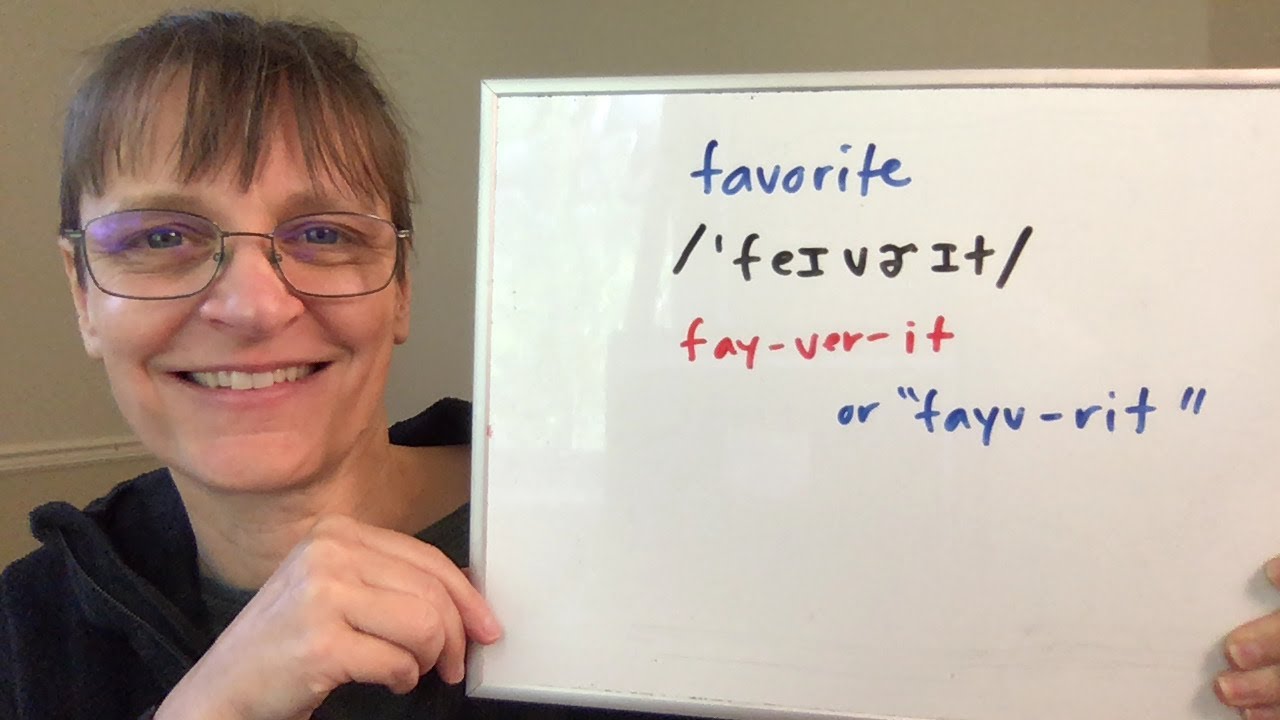 favorite
/ˈfeɪvɚɪt/
fay-ver-it
or "fayv-rit"